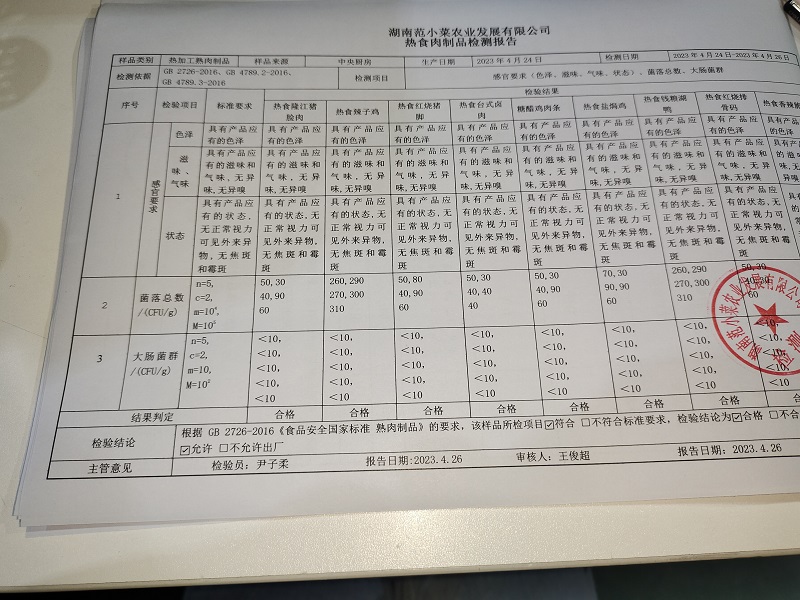 湖南范小菜农业发展有限公司
热食肉制品检测报告
样品类别 热加工熟肉制品 样品来源 中央厨房 生产日期 2023年4月24日 检测日期 2023年4月24日-2023年4月26日
检测依据 GB 2726-2016、GB 4789.2-2016、 检测项目 感官要求（色泽、滋味、气味、状态）、菌落总数、大肠菌群
GB 4789.3-2016
检验结果
序号 检验项目 标准要求 热食隆江猪 热食辣子鸡 热食红烧猪 热食台式卤 糖醋鸡肉条 热食盐焗鸡 热食钱粮湖 热食红烧排 热食香辣
脸肉 脚 肉 鸭 骨码
1 感官要求
色泽 具有产品应 具有产品应 具有产品应 具有产品应 具有产品应 具有产品应 具有产品应 具有产品应 具有产品应
有的色泽 有的色泽 有的色泽 有的色泽 有的色泽 有的色泽 有的色泽 有的色泽 有的色泽
滋 具有产品应 具有产品应 具有产品应 具有产品应 具有产品应 具有产品应 具有产品应 具有产品应 具有产品应
味、 有的滋味和 有的滋味和 有的滋味和 有的滋味和 有的滋味和 有的滋味和 有的滋味和 有的滋味和 有的滋味和
气味 气味,无异 气味,无异 气味,无异 气味,无异 气味,无异 气味,无异 气味,无异 气味,无异 气味,无异
味,无异嗅 味,无异嗅 味,无异嗅 味,无异嗅 味,无异嗅 味,无异嗅 味,无异嗅 味,无异嗅 味,无异嗅
状态 具有产品应 具有产品应 具有产品应 具有产品应 具有产品应 具有产品应 具有产品应 具有产品应 具有产品应
有的状态, 有的状态,无 有的状态,无 有的状态,无 有的状态,无 有的状态,无 有的状态,无 有的状态,无 有的状态,无
无正常视力 正常视力可 正常视力可 正常视力可 正常视力可 正常视力可 正常视力可 正常视力可 正常视力可
可见外来异 见外来异物, 见外来异物, 见外来异物, 见外来异物, 见外来异物, 见外来异物, 见外来异物, 见外来异物,
物,无焦斑 无焦斑和霉 无焦斑和霉 无焦斑和霉 无焦斑和霉 无焦斑和霉 无焦斑和霉 无焦斑和霉 无焦斑和霉
和霉斑 斑 斑 斑 斑 斑 斑 斑 斑
2 菌落总数 n=5, 50,30 260,290 50,80 50,30 50,30 70,30 260,290 50,30
/(CFU/g) c=2, 40,90 270,300 40,90 40,40 40,90 90,90 270,300
m=10⁴, 60 310 60 40 60 60 310 60
M=10⁵
3 大肠菌群 n=5, <10, <10, <10, <10, <10, <10, <10, <10,
/(CFU/g) c=2, <10, <10, <10, <10, <10, <10, <10, <10,
m=10, <10, <10, <10, <10, <10, <10, <10, <10,
M=10² <10, <10, <10, <10, <10, <10, <10, <10,
<10 <10 <10 <10 <10 <10 <10 <10
结果判定 合格 合格 合格 合格 合格 合格 合格 合格 合格
检验结论 根据 GB 2726-2016《食品安全国家标准 熟肉制品》的要求，该样品所检项目☑符合 □不符合标准要求，检验结论为☑合格 □不合
☑允许 □不允许出厂
主管意见 检验员：尹子柔 报告日期:2023.4.26 审核人：王俊超 报告日期：2023.4.26
湖南范小菜农业发展有限公司
检测